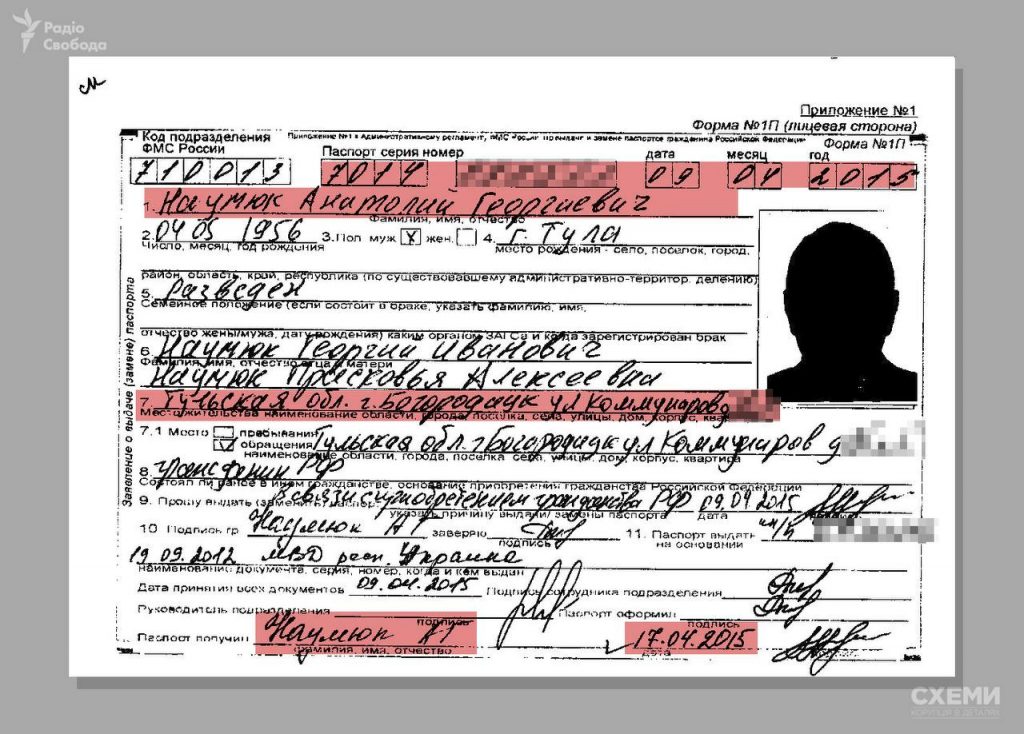 Радіо
Свобода
Приложение №1
Форма №1П (лицевая сторона)
Приложение №1 к Административному регламенту, ФМС России
замене паспортов гражданина Российской Федерации
Код подразделения
ФМС России
Паспорт серия номер
дата
месяц
год
Форма №1П
710013
7014
09
04
2015
1. Наумюк Анатолий Георгиевич
Фамилия, имя, отчество
2. 04 05 1956 3. Пол муж X жен. 4. г. Тула
Число, месяц, год рождения
место рождения - село, поселок, город,
район, область, край, республика (по существовавшему административно-территор. делению)
5. Разведен
Семейное положение (если состоит в браке, указать фамилию, имя,
отчество жены/мужа, дату рождения) каким органом ЗАГСа и когда зарегистрирован брак
6. Наумюк Георгий Иванович
Фамилия, имя, отчество отца и матери
Наумюк Прасковья Алексеевна
7. Тульская обл. г. Богородицк ул Коммунаров д
Место жительства наименование области, города, поселка, села, улицы, дом, корпус, ква
7.1 Место пребывания
обращения Тульская обл. г Богородицк ул Коммунаров д
наименование области, города, поселка села, улицы, дом, корпус, квартира
8. граждании РФ
Состоял ли ранее в ином гражданстве, основание приобретения гражданства Российской Федерации
9. Прошу выдать (заменить) паспорт в связи с приобретением гражданства РФ 09.04.2015
указать причину выдачи/замены паспорта
дата
10 Подпись гр. Наумюк А Г заверяю
подпись
11. Паспорт выдать
на основании
19 09.2012 МВД респ Украина
наименование документа, серия, номер, когда и кем выдан
Дата принятия всех документов 09.04.2015 Подпись сотрудника подразделения
Руководитель подразделения
подпись
Паспорт оформил
подпись
Паспорт получил Наумюк АГ
фамилия, имя, отчество
17.04.2015
дата
Заявление о выдаче (замене) паспорта
СХЕМИ
КОРУПЦІЯ В ДЕТАЛЯХ